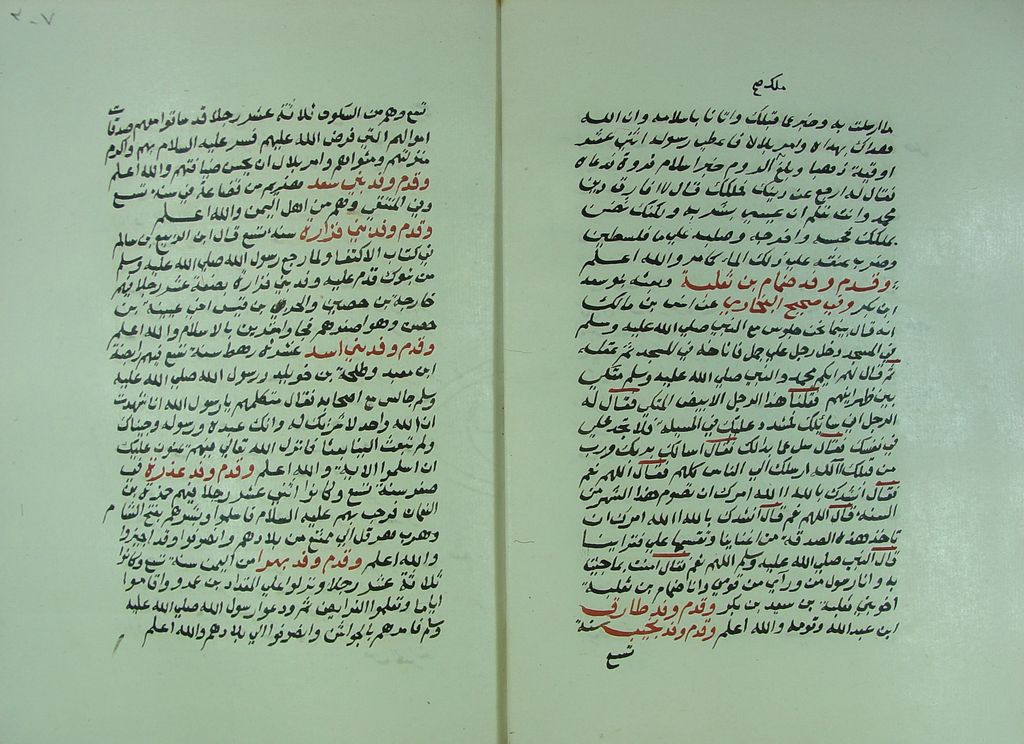 ملك صح
ما ارسلت به وخبر عما قبلك واتانا باسلامه وان الله
هداك بهداه وامر بلالا فاعطى رسوله اثنى عشر
اوقية ذهبا وبلغ الروم خبر اسلام فروة فدعاه
فقال له ارجع عن دينك نملكك قال لا افارق دين
محمد وانت تعلم ان عيسى بشر به ولكنك تضن
بملكك فحبسه واخرجه وصلبه على ما فلسطين
وضرب عنقه على ذلك الماء كافر والله اعلم
وقدم وفد ضمام بن ثعلبة وبعثه بنو سعد
ابن بكر وفي صحيح البخاري عن انس بن مالك
انه قال بينما نحن جلوس مع النبي صلى الله عليه وسلم
في المسجد دخل رجل على جمل فاناخه في المسجد ثم عقله
ثم قال لهم ايكم محمد والنبي صلى الله عليه وسلم متكئ
بين ظهرانيهم فقلنا هذا الرجل الابيض المتكئ فقال له
الرجل اني سائلك فمشدد عليك في المسئلة فلا تجد علي
في نفسك فقال سل عما بدالك فقال اسالك بربك ورب
من قبلك االله ارسلك الى الناس كلهم فقال اللهم نعم
فقال انشدك بالله االله امرك ان نصوم هذا الشهر من
السنة قال اللهم نعم قال انشدك بالله االله امرك ان
تاخذ هذه الصدقة من اغنيائنا وتقسمها على فقراينا
قال النبي صلى الله عليه وسلم اللهم نعم فقال امنت بما جيت
به وانا رسول من ورأيي من قومي وانا ضمام بن ثعلبة
اخو بني ثعلبة بن سعيد بن بكر وقدم وفد طارق
ابن عبدالله وقومه والله اعلم وقدم وفد تجيب سنة
تسع
تسع وهم من السكون ثلاثة عشر رجلا قد ساقوا معهم صدقات
اموالهم التي فرض الله عليهم فسر عليه السلام بهم واكرم
منزلتهم ومثواهم وامر بلال ان يحسن ضيافتهم والله اعلم
وقدم وفد بني سعد هذيم من قضاعة في سنة تسع
وفد المنتفق وهم من اهل اليمن والله اعلم
وقدم وفد بني فزارة سنة تسع قال ابن الربيع بن سالم
في كتاب الاكتفا ولما رجع رسول الله صلى الله عليه وسلم
من تبوك قدم عليه وفد بني فزارة بضعة عشر رجلا فيهم
خارجة بن حصين والحر بن قيس اخي عيينة بن
حصن وهو اصغرهم فجاوا مقرين بالاسلام والله اعلم
وقدم وفد بني اسد عشرة رهط سنة تسع فيهم وابصة
ابن معبد وطلحة بن خويلد ورسول الله صلى الله عليه
وسلم جالس مع اصحابه فقال متكلمهم يارسول الله انا شهدت
ان الله واحد لا شريك له وانك عبده ورسوله وجيناك
ولم تبعث الينا بعثا فانزل الله تعالى فيهم يمنون عليك
ان اسلموا الاية والله اعلم وقدم وفد عذرة في
صفر سنة تسع وكانوا اثنى عشر رجلا فيهم حمزة بن
النعمان فرحب بهم عليه السلام فاسلموا وبشرهم بفتح الشام
وهرب هرقل الى ممتنع من بلادهم وانصرفوا وقد اجيزوا
والله اعلم وقدم وفد بهرا من اليمن سنة تسع وكانوا
ثلاثة عشر رجلا ونزلوا على المقداد بن عمرو واقاموا
اياما وتعلموا الفرايض ثم ودعوا رسول الله صلى الله عليه
وسلم فامر لهم بالجوائز وانصرفوا الى بلادهم والله اعلم